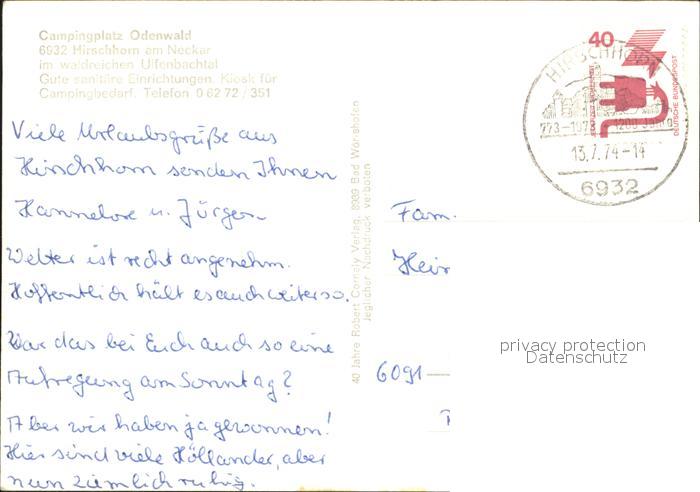 Campingplatz Odenwald
6932 Hirschhorn am Neckar
im waldreichen Ulfenbachtal
Gute sanitäre Einrichtungen. Kiosk für
Campingbedarf. Telefon 0 62 72 / 351
Viele Urlaubsgrüße aus
Hirschhorn senden Ihnen
Hannelore u. Jürgen
Wetter ist recht angenehm.
Hoffentlich hält es auch weiter so.
War das bei Euch auch so eine
Aufregung am Sonntag?
Aber wir haben ja gewonnen!
Hier sind viele Holländer, aber
nun ziemlich ruhig.
40 Jahre Robert Cornely Verlag, 8939 Bad Wörishofen
Jeglicher Nachdruck verboten
40
JEDERZEIT SICHERHEIT
DEUTSCHE BUNDESPOST
HIRSCHHORN
773-197
1200 Jahre
13.7.74-14
6932
Fam.
Hein
6091
privacy protection
Datenschutz